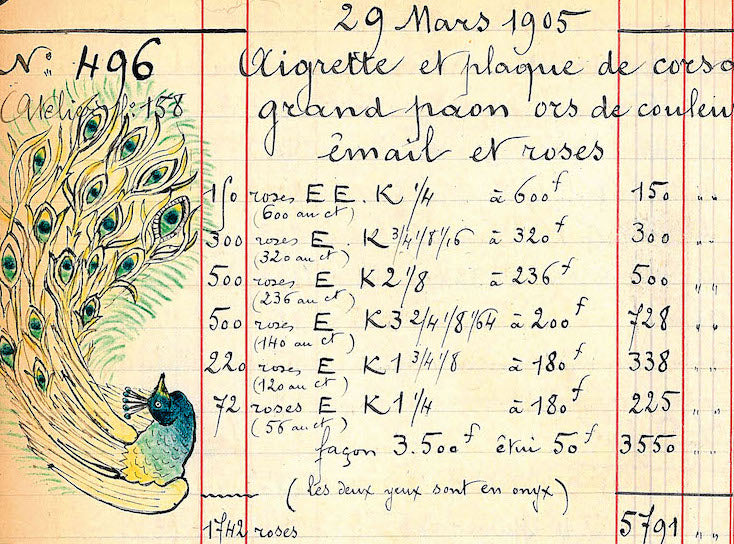 29 Mars 1905
Nº 496
Aigrette et plaque de corsa
(Atelier Nº: 158
grand paon ors de couleu
émail et roses
150 roses EE. K 1/4 à 600f 150 " "
(600 au ct)
300 roses E. K 3/4 1/8 1/16 à 320f 300 " "
(320 au ct)
500 roses E K 2 1/8 à 236f 500 " "
(236 au ct)
500 roses E K 3 2/4 1/8 1/64 à 200f 728 " "
(140 au ct)
220 roses E K 1 3/4 1/8 à 180f 338 " "
(120 au ct)
72 roses E K 1 1/4 à 180f 225 " "
(56 au ct)
façon 3.500f étui 50f 3550 " "
(les deux yeux sont en onyx)
1742 roses 5791 " "